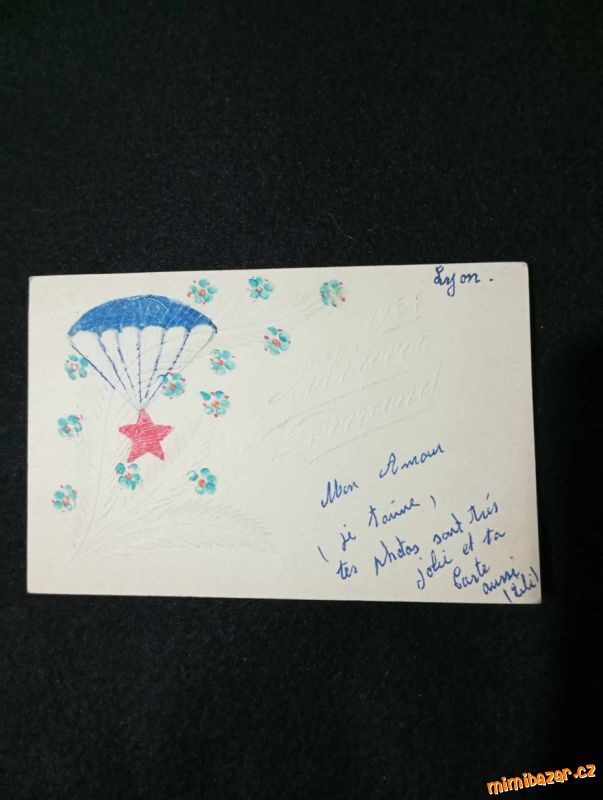 Lyon.
Mon Amour
je t'aime,
tes photos sont très
jolie et ta
Carte
aussi
(Lili)
mimibazar.cz